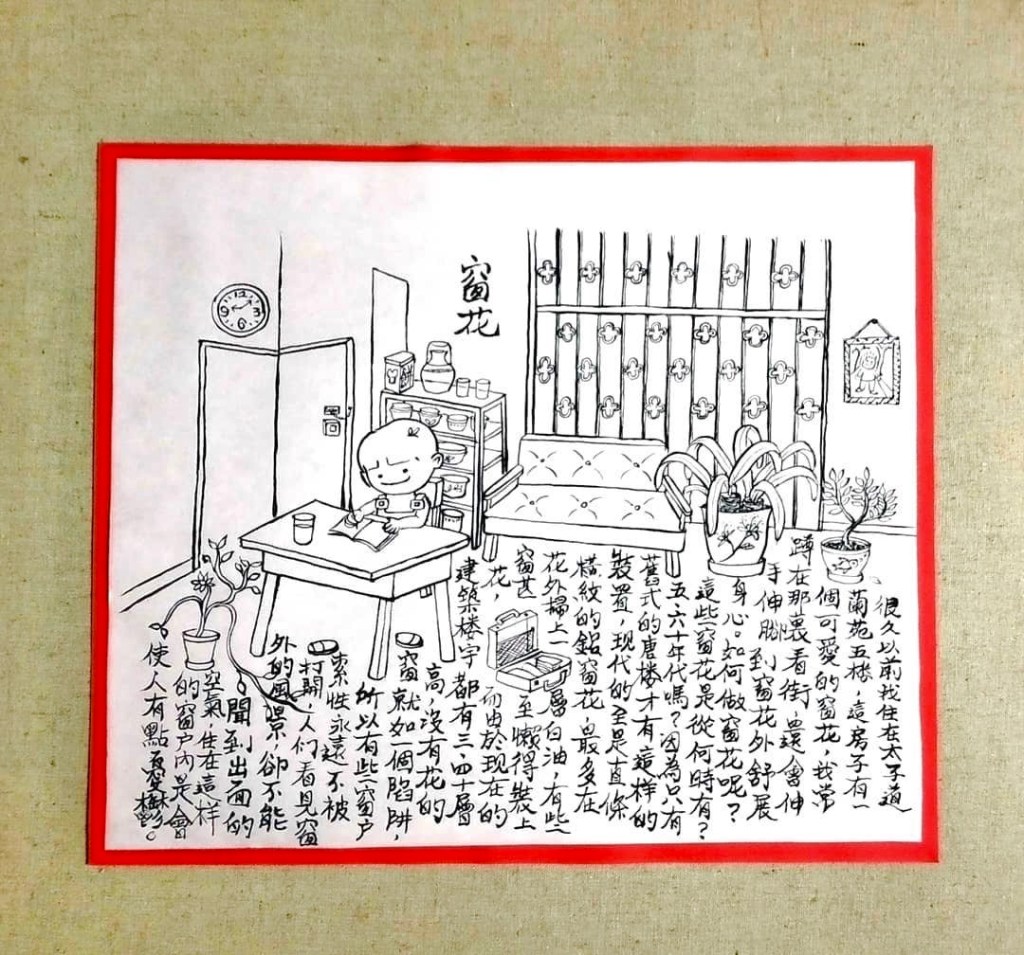 窗花
12
3
6
9
很久以前我住在太子道
蘭苑五楼，這房子有一
個可愛的窗花，我常
蹲在那裏看街，還會伸
手伸腳到窗花外舒展
身心。如何做窗花呢？
這些窗花是從何時有？
五·六十年代嗎？因為只有
舊式的唐楼才有這样的
裝置，現代的全是直條
橫紋的鋁窗花，最多在
花外掃上一層白油，有些
窗甚至懶得裝上
花，而由於現在的
建築楼宇都有三·四十層
高，沒有花的
窗就如一個陷阱，
所以有些窗户
索性永遠不被
打開，人们看見窗
外的風景，卻不能
聞到出面的
空氣，住在這样
的窗户內是會
使人有點憂鬱。